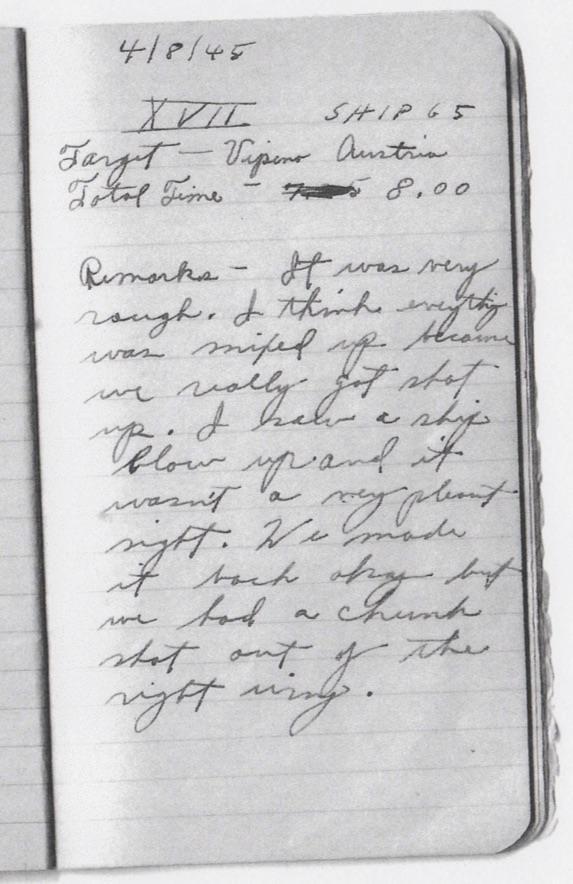 4/8/45
XVII SHIP 65
Target — Vipeno Austria
Total Time - 8.00
Remarks - It was very
rough. I think eveythig
was mixed up because
we really got shot
up. I saw a ship
blow up and it
wasn't a very pleasnt
sight. We made
it back okay but
we had a chunk
shot out of the
right wing.